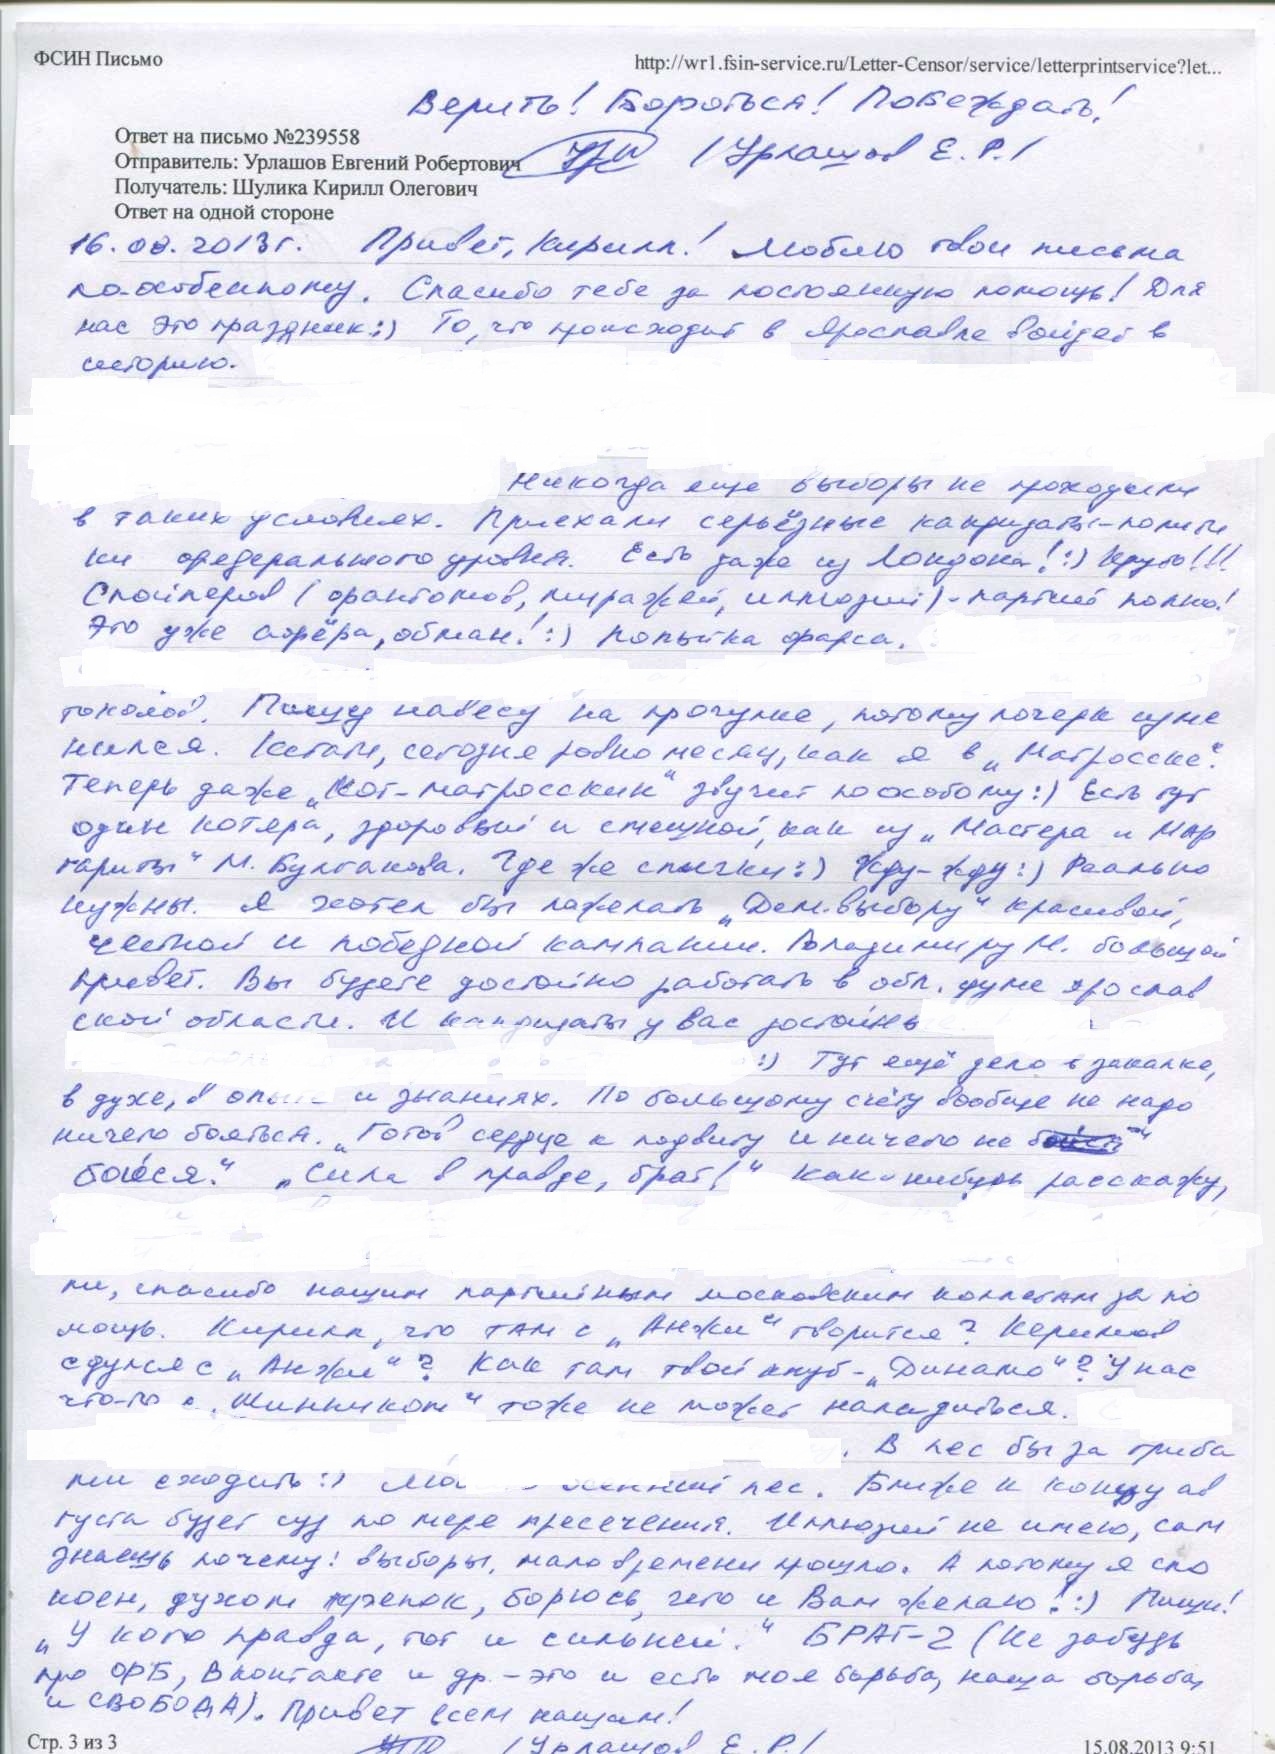 ФСИН Письмо
http://wr1.fsin-service.ru/Letter-Censor/service/letterprintservice?let...
Верить! Бороться! Побеждать!
Ответ на письмо №239558
Отправитель: Урлашов Евгений Робертович
/Урлашов Е.Р./
Получатель: Шулика Кирилл Олегович
Ответ на одной стороне
16.08.2013г. Привет, Кирилл! Люблю твои письма
по-особенному. Спасибо тебе за постоянную помощь! Для
нас это праздник:) То, что происходит в Ярославле войдет в
историю.
Никогда еще выборы не проходили
в таких условиях. Приехали серьёзные кандидаты-полити
ки федерального уровня. Есть даже из Лондона!:) Круто!!!
Спойлеров (фантомов, миражей, иллюзий)-партий полно!
Это уже афёра, обман!:) Попытка фарса.
токолов. Пишу на весу на прогулке, потому почерк изме
нился. Кстати, сегодня ровно месяц, как я в „Матросске".
Теперь даже „Кот-матросскин" звучит по особому:) Есть тут
один котяра, здоровый и смешной, как из „Мастера и Мар
гариты" М. Булгакова. Где же спички:) Жду-жду:) Реально
нужны. Я хотел бы пожелать „Дем.выбору" красивой,
честной и победной кампании. Владимиру М. большой
привет. Вы будете достойно работать в обл. думе Ярослав
ской области. И кандидаты у вас достойны
:) Тут ещё дело в закалке,
в духе, в опыте и знаниях. По большому счёту вообще не надо
ничего бояться. „Готовь сердце к подвигу и ничего не
бойся." „Сила в правде, брат!" Как-нибудь расскажу,
ти, спасибо нашим партийным московским коллегам за по
мощь. Кирилл, что там с „Анжи" творится? Керимов
сдулся с „Анжи"? Как там твой клуб-„Динамо"? У нас
что-то с „Шинником" тоже не может наладиться.
В лес бы за гриба
ми сходить:) лес. Ближе к концу ав
густа будет суд по мере пресечения. Иллюзий не имею, сам
знаешь почему: выборы, мало времени прошло. А потому я спо
коен, духом крепок, борюсь, чего и Вам желаю!:) Пиши!
„У кого правда, тот и сильней." БРАТ-2 (Не забудь
про ФБ, Вконтакте и др.-это и есть моя борьба, наша борьба,
и СВОБОДА). Привет всем нашим!
/Урлашов Е.Р./
Стр. 3 из 3
15.08.2013 9:51